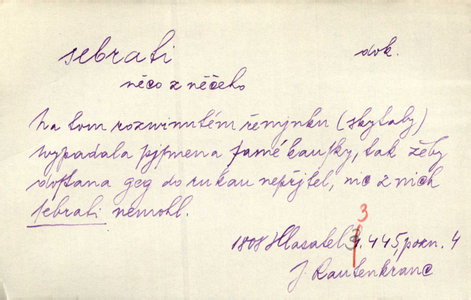 sebrati dok.
něco z něčeho
Na tom rozwinutém řemýnku (skytaby)
wypadala pjsmena samé kausky, tak žeby
dostana geg do rukau nepřjtel, nic z nich
sebrati nemohl.
3
1808 Hlasatel 3. 445, pozn. 4
J. Rautenkranc